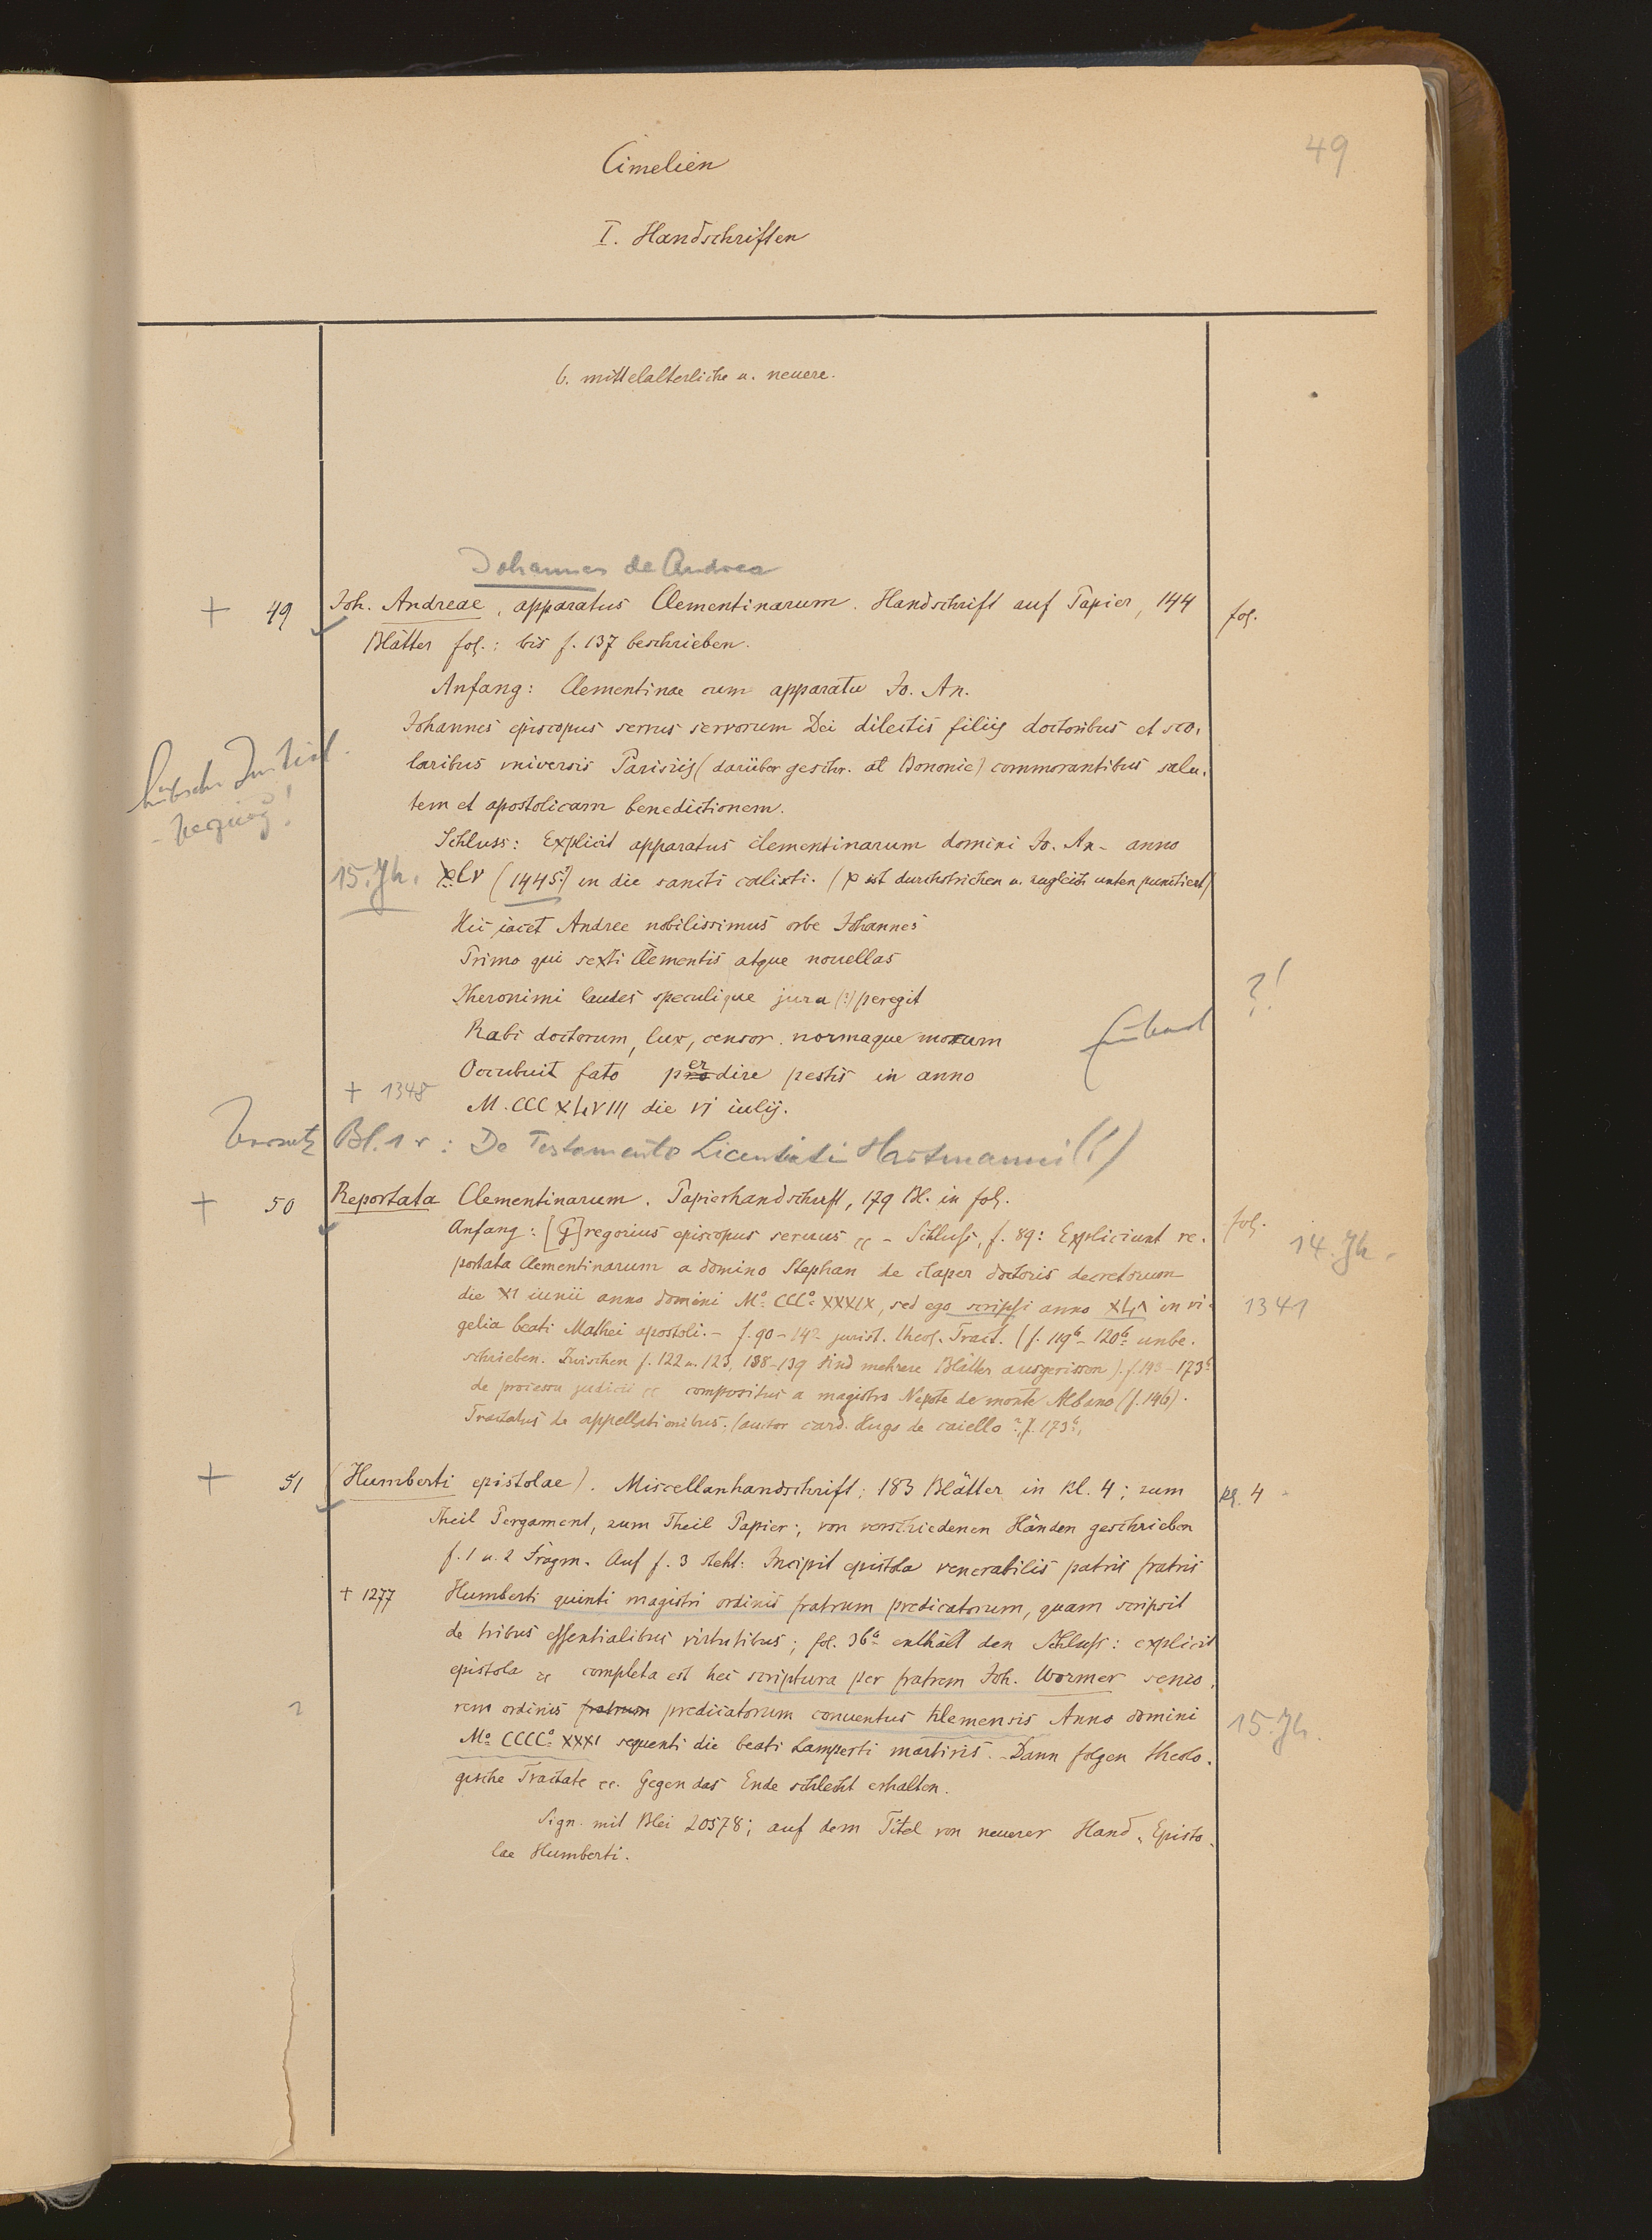 49
Cimelien
I. Handschriften
b. mittelalterliche u. neuere.
Johannes de Andrea
+ 49 Joh. Andreae, apparatus Clementinarum. Handschrift auf Papier, 144 fol.
Blätter fol.: bis f. 137 beschrieben.
Anfang: Clementinae cum apparatu Jo. An.
Johannes episcopus servus servorum Dei dilectis filiis doctoribus et sco-
laribus universis Parisiis (darüber geschr. at Bononie) commorantibus salu-
tem et apostolicam benedictionem.
hübsche Initial
Schluss: Explicit apparatus clementinarum domini Jo. An. anno
15. Jh. xlv (1445?) in die sancti calixti. (x ist durchstrichen u. zugleich unten punctiert)
Hic iacet Andree nobilissimus orbe Johannes
Primo qui sexti Clementis atque nouellas
Iheronimi laudes speculique jura (?) peregit
?!
Rabi doctorum, lux, censor normaque morum
Occubuit fato pro er dire pestis in anno
+ 1348
M.CCCXLVIII die vi iulij.
Vorsatz Bl. 1 r: De Testamento Licentiati Hartmanni (!)
+ 50 Reportata Clementinarum. Papierhandschrift, 179 Bl. in fol. fol.
Anfang: [G]regorius episcopus seruus cc - Schluss, f. 89: Expliciunt re-
14. Jh.
portata Clementinarum a domino Stephan de claper doctoris decretorum
die XI iunii anno domini Mº CCCº XXXIX, sed ego scripsi anno XLI in vi- 1341
gelia beati Mathei apostoli. - f. 90-142 jurist. theol. Tract. (f. 119b - 120b unbe-
schrieben. Zwischen f. 122 u. 123, 138-139 sind mehrere Blätter ausgerissen). f. 143-173b
de processu judicii cc compositus a magistro Nepote de monte Albano (f. 146).
Tractatus de appellationibus. (auctor card. Hugo de caiello?, f. 173b.
+ 51 (Humberti epistolae). Miscellanhandschrift; 183 Blätter in kl. 4; zum kl. 4
Theil Pergament, zum Theil Papier:, von verschiedenen Händen geschrieben
f. 1 u. 2 Fragm. Auf f. 3 steht: Incipit epistola venerabilis patris fratris
+ 1277 Humberti quinti magistri ordinis fratrum predicatorum, quam scripsit
de tribus essentialibus virtutibus; fol. 36a enthält den Schluss: explicit
epistola cc completa est hec scriptura per fratrem Joh. Wormer senio-
rem ordinis fratrum predicatorum conuentus Ulemensis Anno domini
15. Jh.
Mº CCCCº XXXI sequenti die beati Lamperti martiris. - Dann folgen theolo-
gische Tractate cc. Gegen das Ende schlecht erhalten.
Sign. mit Blei 20578; auf dem Titel von neuerer Hand „Episto-
lae Humberti.